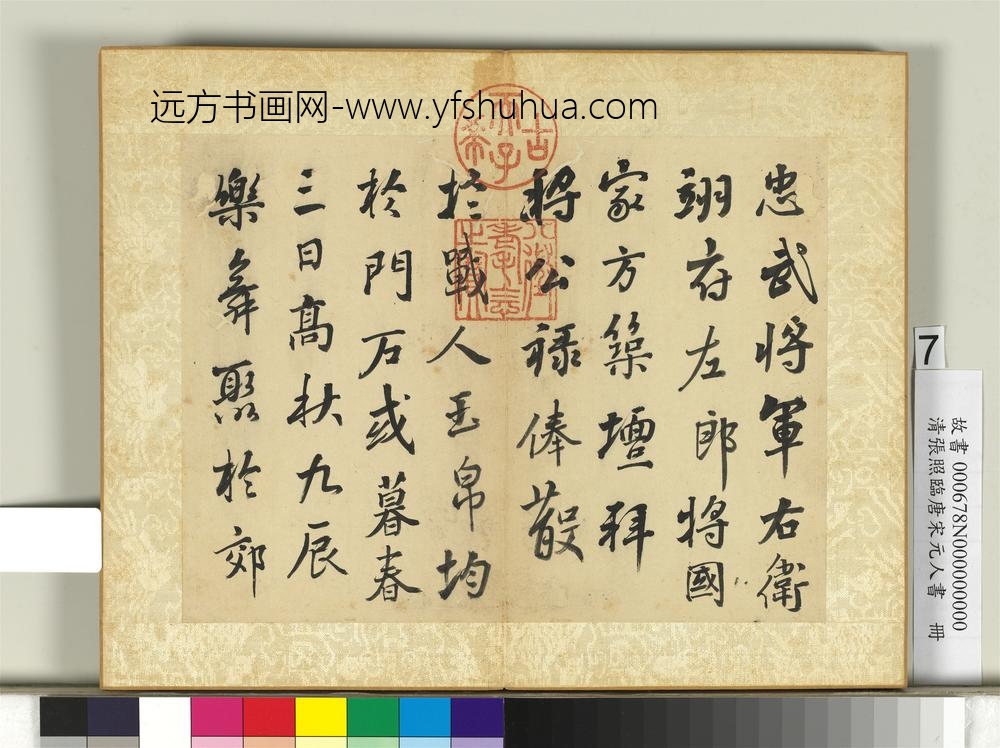 远方书画网-www.yfshuhua.com
忠武將軍右衛
翊府左郎將國
家方築壇拜
將公祿俸散
扵戰人玉帛均
扵門石或暮春
三日高秋九辰
樂舞聚扵郊
古希天子
7
故書 000678N000000000
清張照臨唐宋元人書 冊